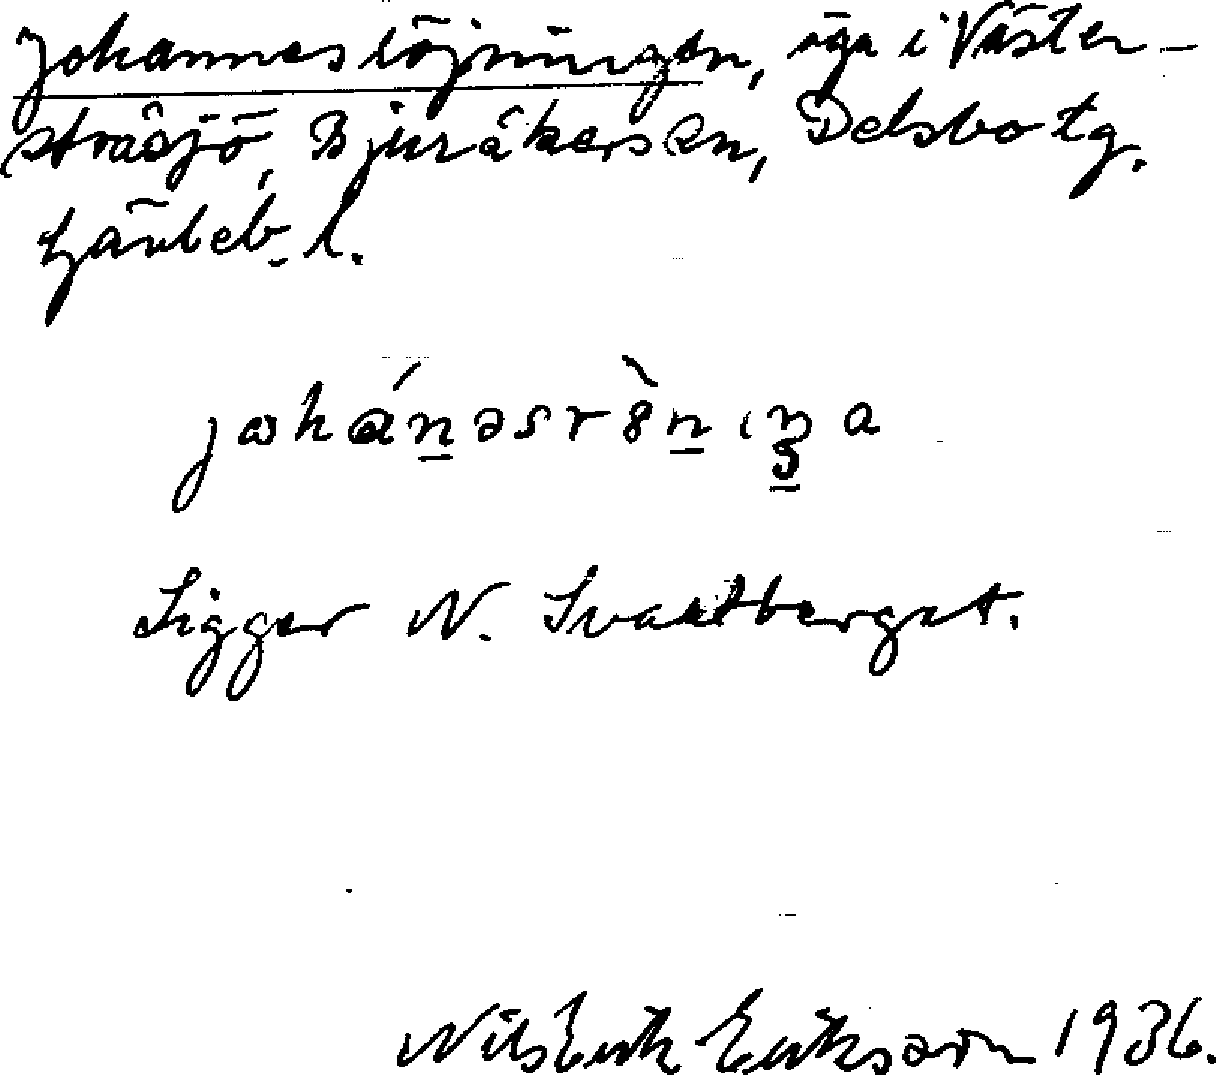 Johannesröjningen, äga i Väster-
stråsjö, Bjuråkers sn, Delsbo tg.
Gävleb. l.
johánəsrö̀niŋa
Ligger N. Svartberget.
Nils Erik Eriksson 1936.